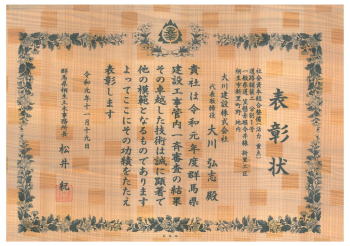 表彰状
社会資本総合整備(活力・重点)
大川建設株式会社
代表取締役 大川 弘志 殿
貴社は令和元年度群馬県
建設工事管内一斉審査の結果
その卓越した技術は誠に顕著で
他の模範となるものであります
よってここにその功績をたたえ
表彰します
令和元年十一月十九日
群馬県桐生土木事務所長 松井